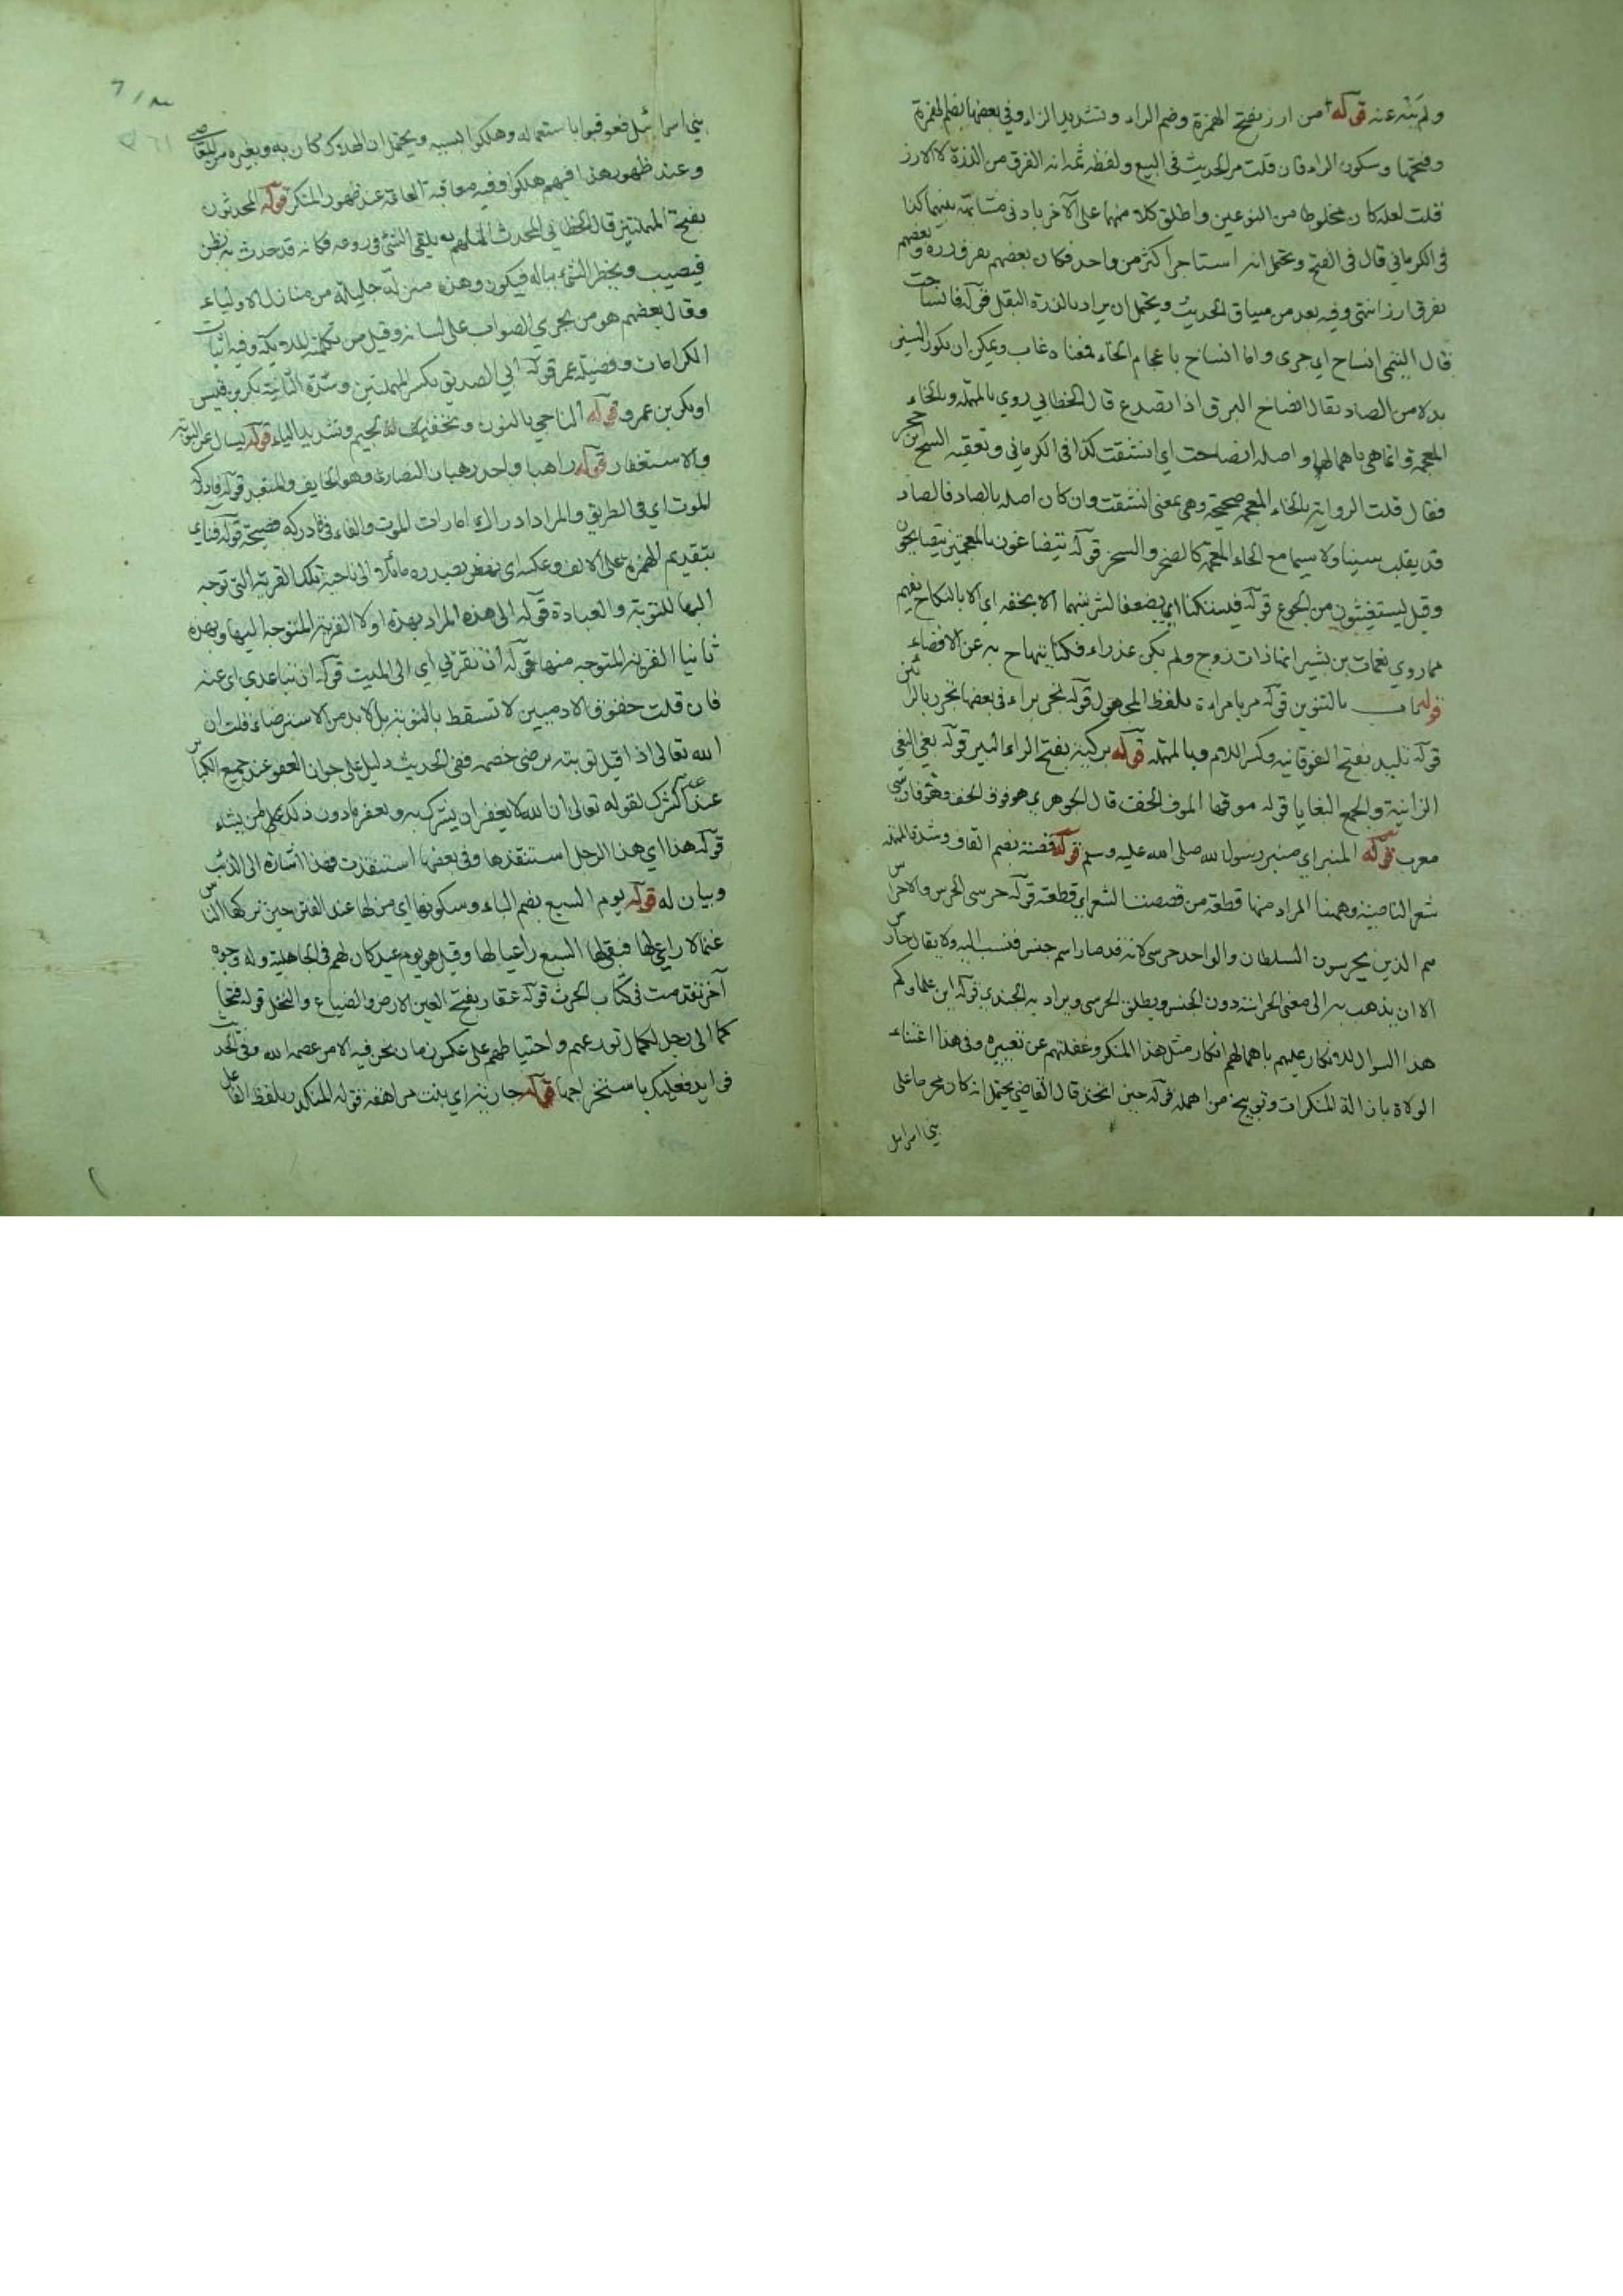 ولم ينته عنه قوله من ارز بفتح الهمزة وضم الراء وتشديد الزاء وفي بعضها بضم الهمزة
وفتحها وسكون الراء فان قلت مر الحديث في البيع ولفظه ثمه انه الفرق من الذرة لا الارز
قلت لعله كان مخلوطا من النوعين واطلق كلا منهما على الآخر بادنى مشابهة بينهما كذا
في الكرماني قال في الفتح ويحتمل انه استاجر اكثر من واحد فكان بعضهم بفرق ذرة وبعضهم
بفرق ارز انتهى وفيه بعد من سياق الحديث ويحتمل ان يراد بالذرة قوله فانساحت
قال التيمي انساح اي جرى واما انساخ باعجام الخاء فمعناه غاب ويمكن ان يكون السين
بدلا من الصاد يقال انصاخ البرق اذا تصدع قال الخطابي روي بالمهملة وبالخاء
المعجمة وانما هي باهمالها واصله انصاحت اي انشقت كذا في الكرماني وتعقبه الشيخ ابن حجر
فقال قلت الرواية بالخاء المعجمة صحيحة وهي بمعنى انشقت وان كان اصله بالصاد فالصاد
قد يقلب سينا ولا سيما مع الخاء المعجمة كالصخر والسخر قوله يتضاغون بالمعجمتين يتصايحون
وقيل يستغيثون من الجوع قوله فيستكنا اي يضعفا لشربتهما الا بحقه اي الا بالنكاح
مما روي نعمان بن بشير انها ذات زوج ولم تكن عذراء عن الافضاء
قوله باب بالتنوين قوله مر بامراة بلفظ المجهول قوله تجر براء في بعضها تجرر بالراءين
قوله بفتح الفوقانية وكسر اللام وبالمهملة قوله بركية بفتح الراء البير قوله بغي البغي
الزانية والجمع البغايا قوله موقها الموق الخف قال الجوهري هو فوق الخف وهو فارسي
معرب قوله المنبر اي منبر رسول الله صلى الله عليه وسلم قوله قصة بضم القاف وشدة المهملة
شعر الناصية وههنا المراد منها قطعة من قصصت الشعر اي قطعته قوله حرسي الحرس والاحراس
هم الذين يحرسون السلطان والواحد حرسي لانه قد صار اسم جنس فنسب اليه ولا يقال حارس
الا ان يذهب به الى معنى الحراسة دون الجنس ويطلق الحرسي ويراد به الجندي قوله اين علماوكم
هذا السوال للانكار عليهم باهمالهم انكار مثل هذا المنكر وغفلتهم عن تغييره وفي هذا اعتناء
الولاة بازالة المنكرات وتوبيخ من اهمله قوله حين اتخذ قال القاضي يحتمل انه كان محرما على
بني اسرايل
بني اسرائيل فعوقبوا باستعماله وهلكوا بسببه ويحتمل ان الهلاك كان به وبغيره من المعاصي
وعند ظهور هذا فيهم هلكوا وفيه معاقبة العامة عند ظهور المنكر قوله المحدثون
بفتح المهملتين قال الخطابي المحدث الملهم يلقي الشئ في روعه فكانه قد حدث به يظن
فيصيب ويخطر الشئ بباله فيكون وهذه منزلة جليلة من منازل الاولياء
وقال بعضهم هو من يجري الصواب على لسانه وقيل من تكلمه الملائكة وفيه اثبات
الكرامات وفضيلة عمر قوله ابي الصديق بكسر المهملتين وشدة الثانية بكر بن قيس
او بكر بن عمرو قوله الناجي بالنون وتخفيف الجيم وتشديد الياء قوله يسال عن التوبة
والاستغفار قوله راهبا واحد رهبان النصارى وهو الخايف والمتعبد قوله فادركه
الموت اي في الطريق والمراد ادراك امارات الموت والفاء في فادركه فصيحة قوله فناي
بتقديم الهمزة على الالف وعكسه اي نهض بصدره مائلا الى ناحية تلك القرية التي توجه
اليها للتوبة والعبادة قوله الى هذه المراد بهذه اولا القرية المتوجه اليها وبهذه
ثانيا القرية المتوجه منها قوله ان تقربي اي الى الميت قوله ان تباعدي اي عنه
فان قلت حقوق الادميين لا تسقط بالتوبة بل لا بد من الاسترضاء قلت ان
الله تعالى اذا قبل توبته يرضي خصمه ففي الحديث دليل على جواز العفو عن جميع الكبائر
غير الشرك لقوله تعالى ان الله لا يغفر ان يشرك به ويغفر ما دون ذلك لمن يشاء
قوله هذا اي هذا الرجل استنقذها وفي بعضها استنقذت فهذا اشارة الى الذئب
وبيان له قوله يوم السبع بضم الباء وسكونها اي من لها عند الفتن حين تركها الناس
غنما لا راعي لها فبقي لها السبع راعيا لها وقيل هو يوم عيد كان لهم في الجاهلية وله وجوه
آخر تقدمت في كتاب الحرث قوله عقار بفتح العين الارض والضياع والنخل قوله فتحا
كما الى رجل لكمال تورعهم واحتياطهم على عكس زمان نحن فيه الا من عصمه الله وفي الحديث
فوايد فعليك باستخراجها قوله جارية اي بنت مراهقة قوله المنكدر بلفظ الفاعل